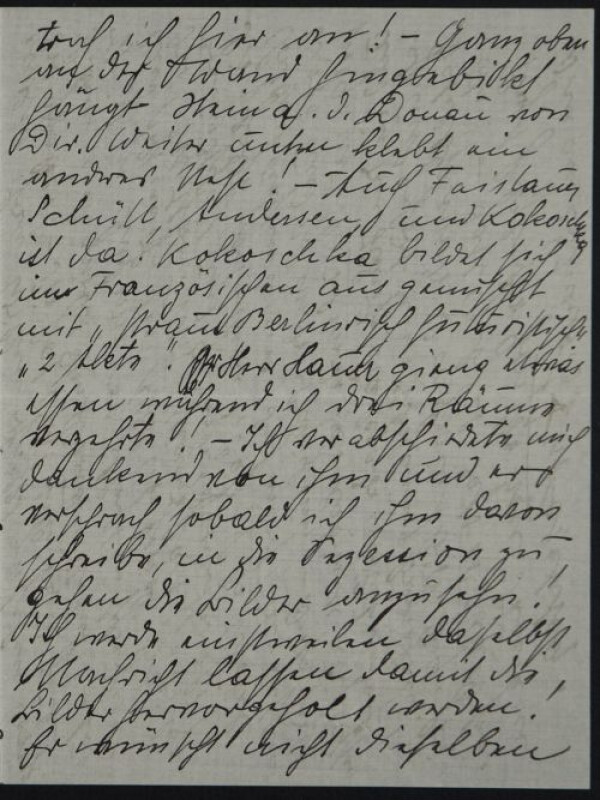 traf ich hier an! – Ganz oben
an der Wand hingebickt
hängt Stein a. d. Donau von
Dir. Weiter unten klebt ein
anderes Nest! – Auch Faistauer
Schütt, Andersen, und Kokoschka
ist da! Kokoschka bildet sich
im Französischen aus gemischt
mit „ Berlinerisch futuristisch
„2 Akte". Herr Hauer gieng etwas
essen während ich drei Räume
verzehrte! – Ich verabschiedete mich
dankend von ihm und er
versprach sobald ich ihm davon
schreibe, in die Sezession zu
gehen die Bilder anzusehn!
Ich werde einstweilen daselbst
Nachricht lassen damit die
Bilder hervorgeholt werden!
Er wünscht nicht dieselben